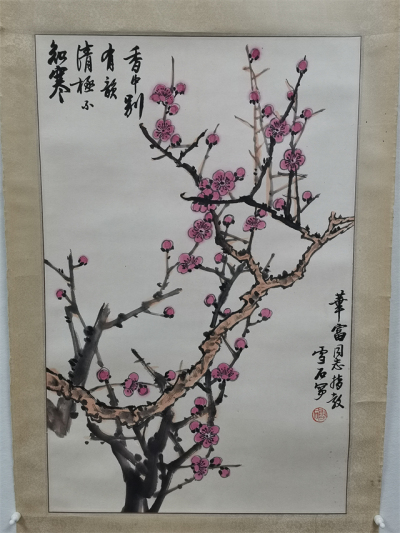 香中别
有韵
清極不
知寒
華富同志指教
雪石写